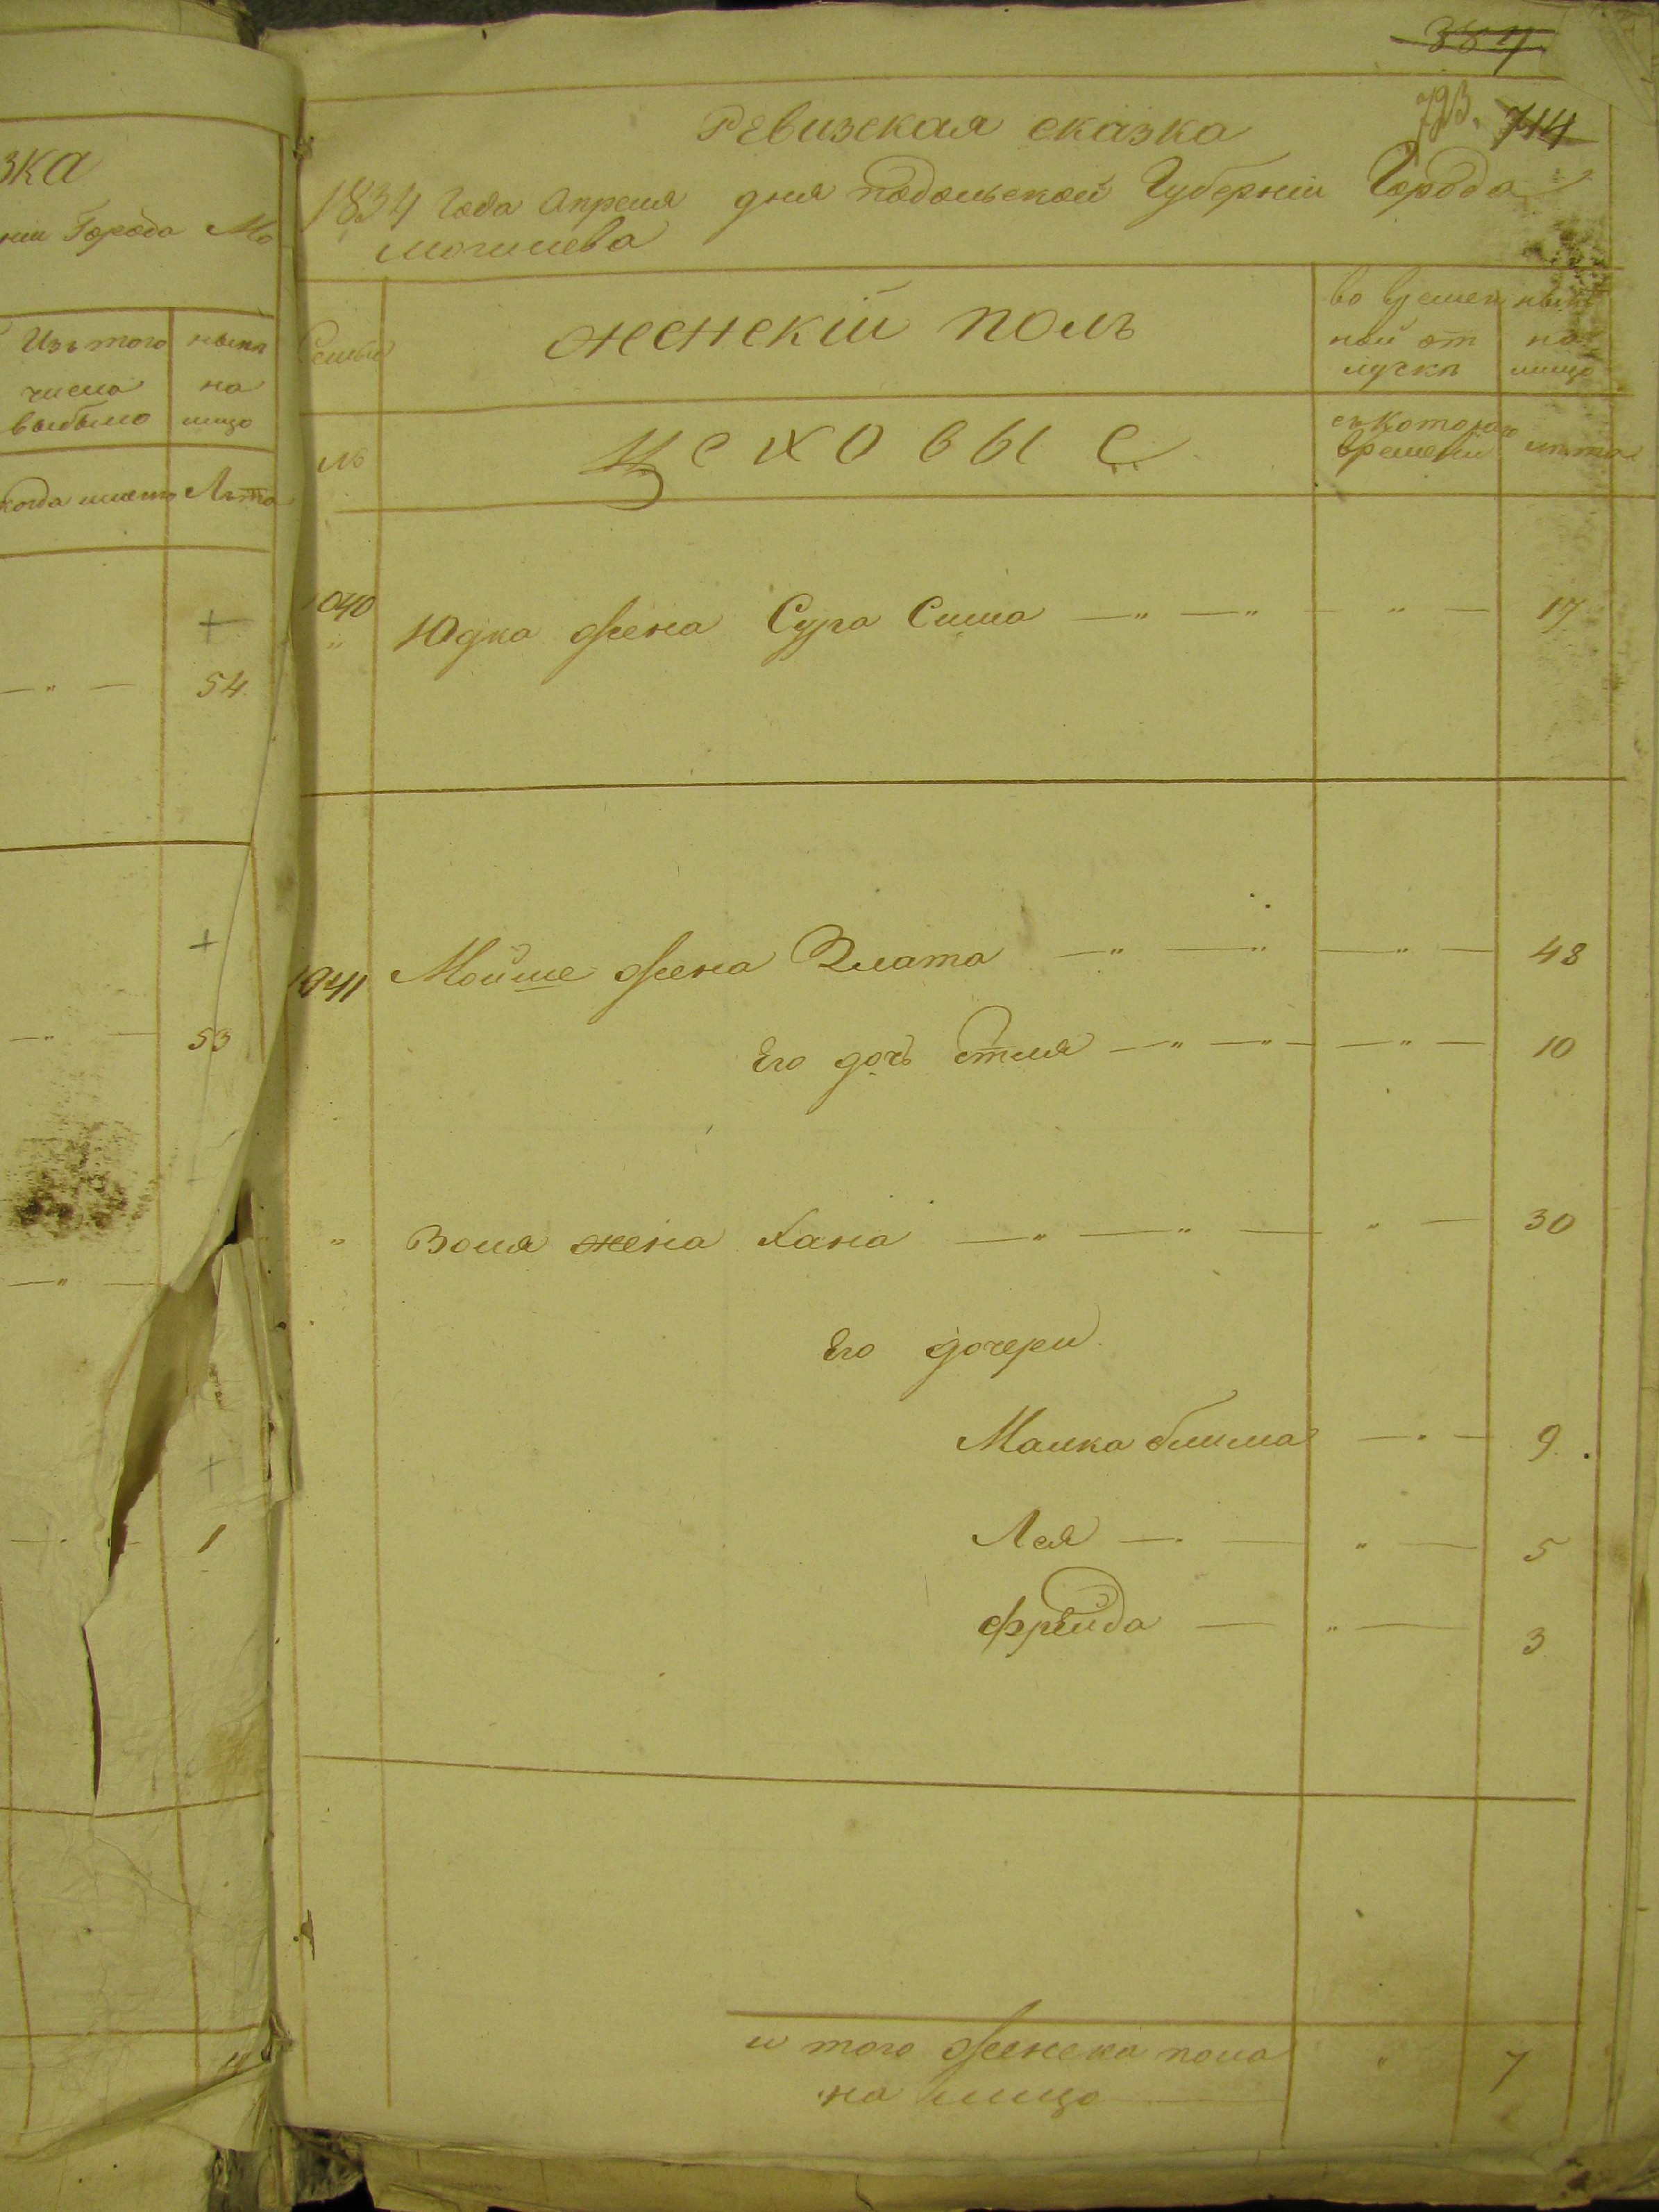 384
793. 714
Ревизская сказка
1834 Года Апреля дня подольской Губерніи Города
могилева
Семьи
женскій полъ
во времен
ной от
лучкѣ
нынѣ
на
лицо
№
цеховые
съ котораго
времени
лѣта
1040
Юдка жена Сура Сима — " — " — " — 17
1041 Мойше жена Злата — " — " — " — 48
Его дочь Этля — " — " — " — 10
" Воля жена Хана — " — " — " — 30
Его дочери
Малка блима — " — 9.
Лея — " — " — 5
фрейда — " — 3
и того женска пола " 7
на лицо
зка
ніи Города Мо
Изъ того
числа
выбыло
нынѣ
на
лицо
когда именно Лѣта
+
— " — 54
+
— " — 53
— " —
+
— " — 1